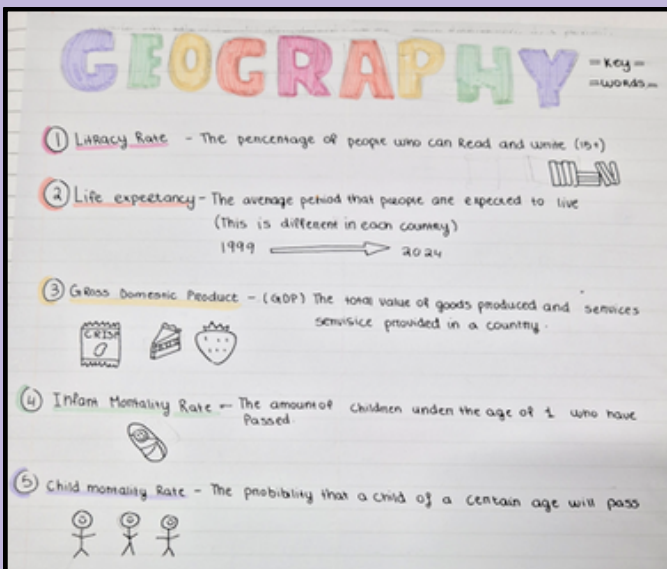 GEOGRAPHY
= Key =
= words =
1 Litracy Rate - The pencentage of people who can Read and write (15+)
2 Life expectancy - The average peniod that people ane expected to live
(This is different in each country)
1999 → 2024
3 GRoss Domestic Product - (GDP) The total value of goods produced and services
servisice provided in a country.
CRISP
4 Infant Mortality Rate - The amount of children under the age of 1 who have
Passed.
5 Child mortality Rate - The probiblity that a child of a certain age will pass